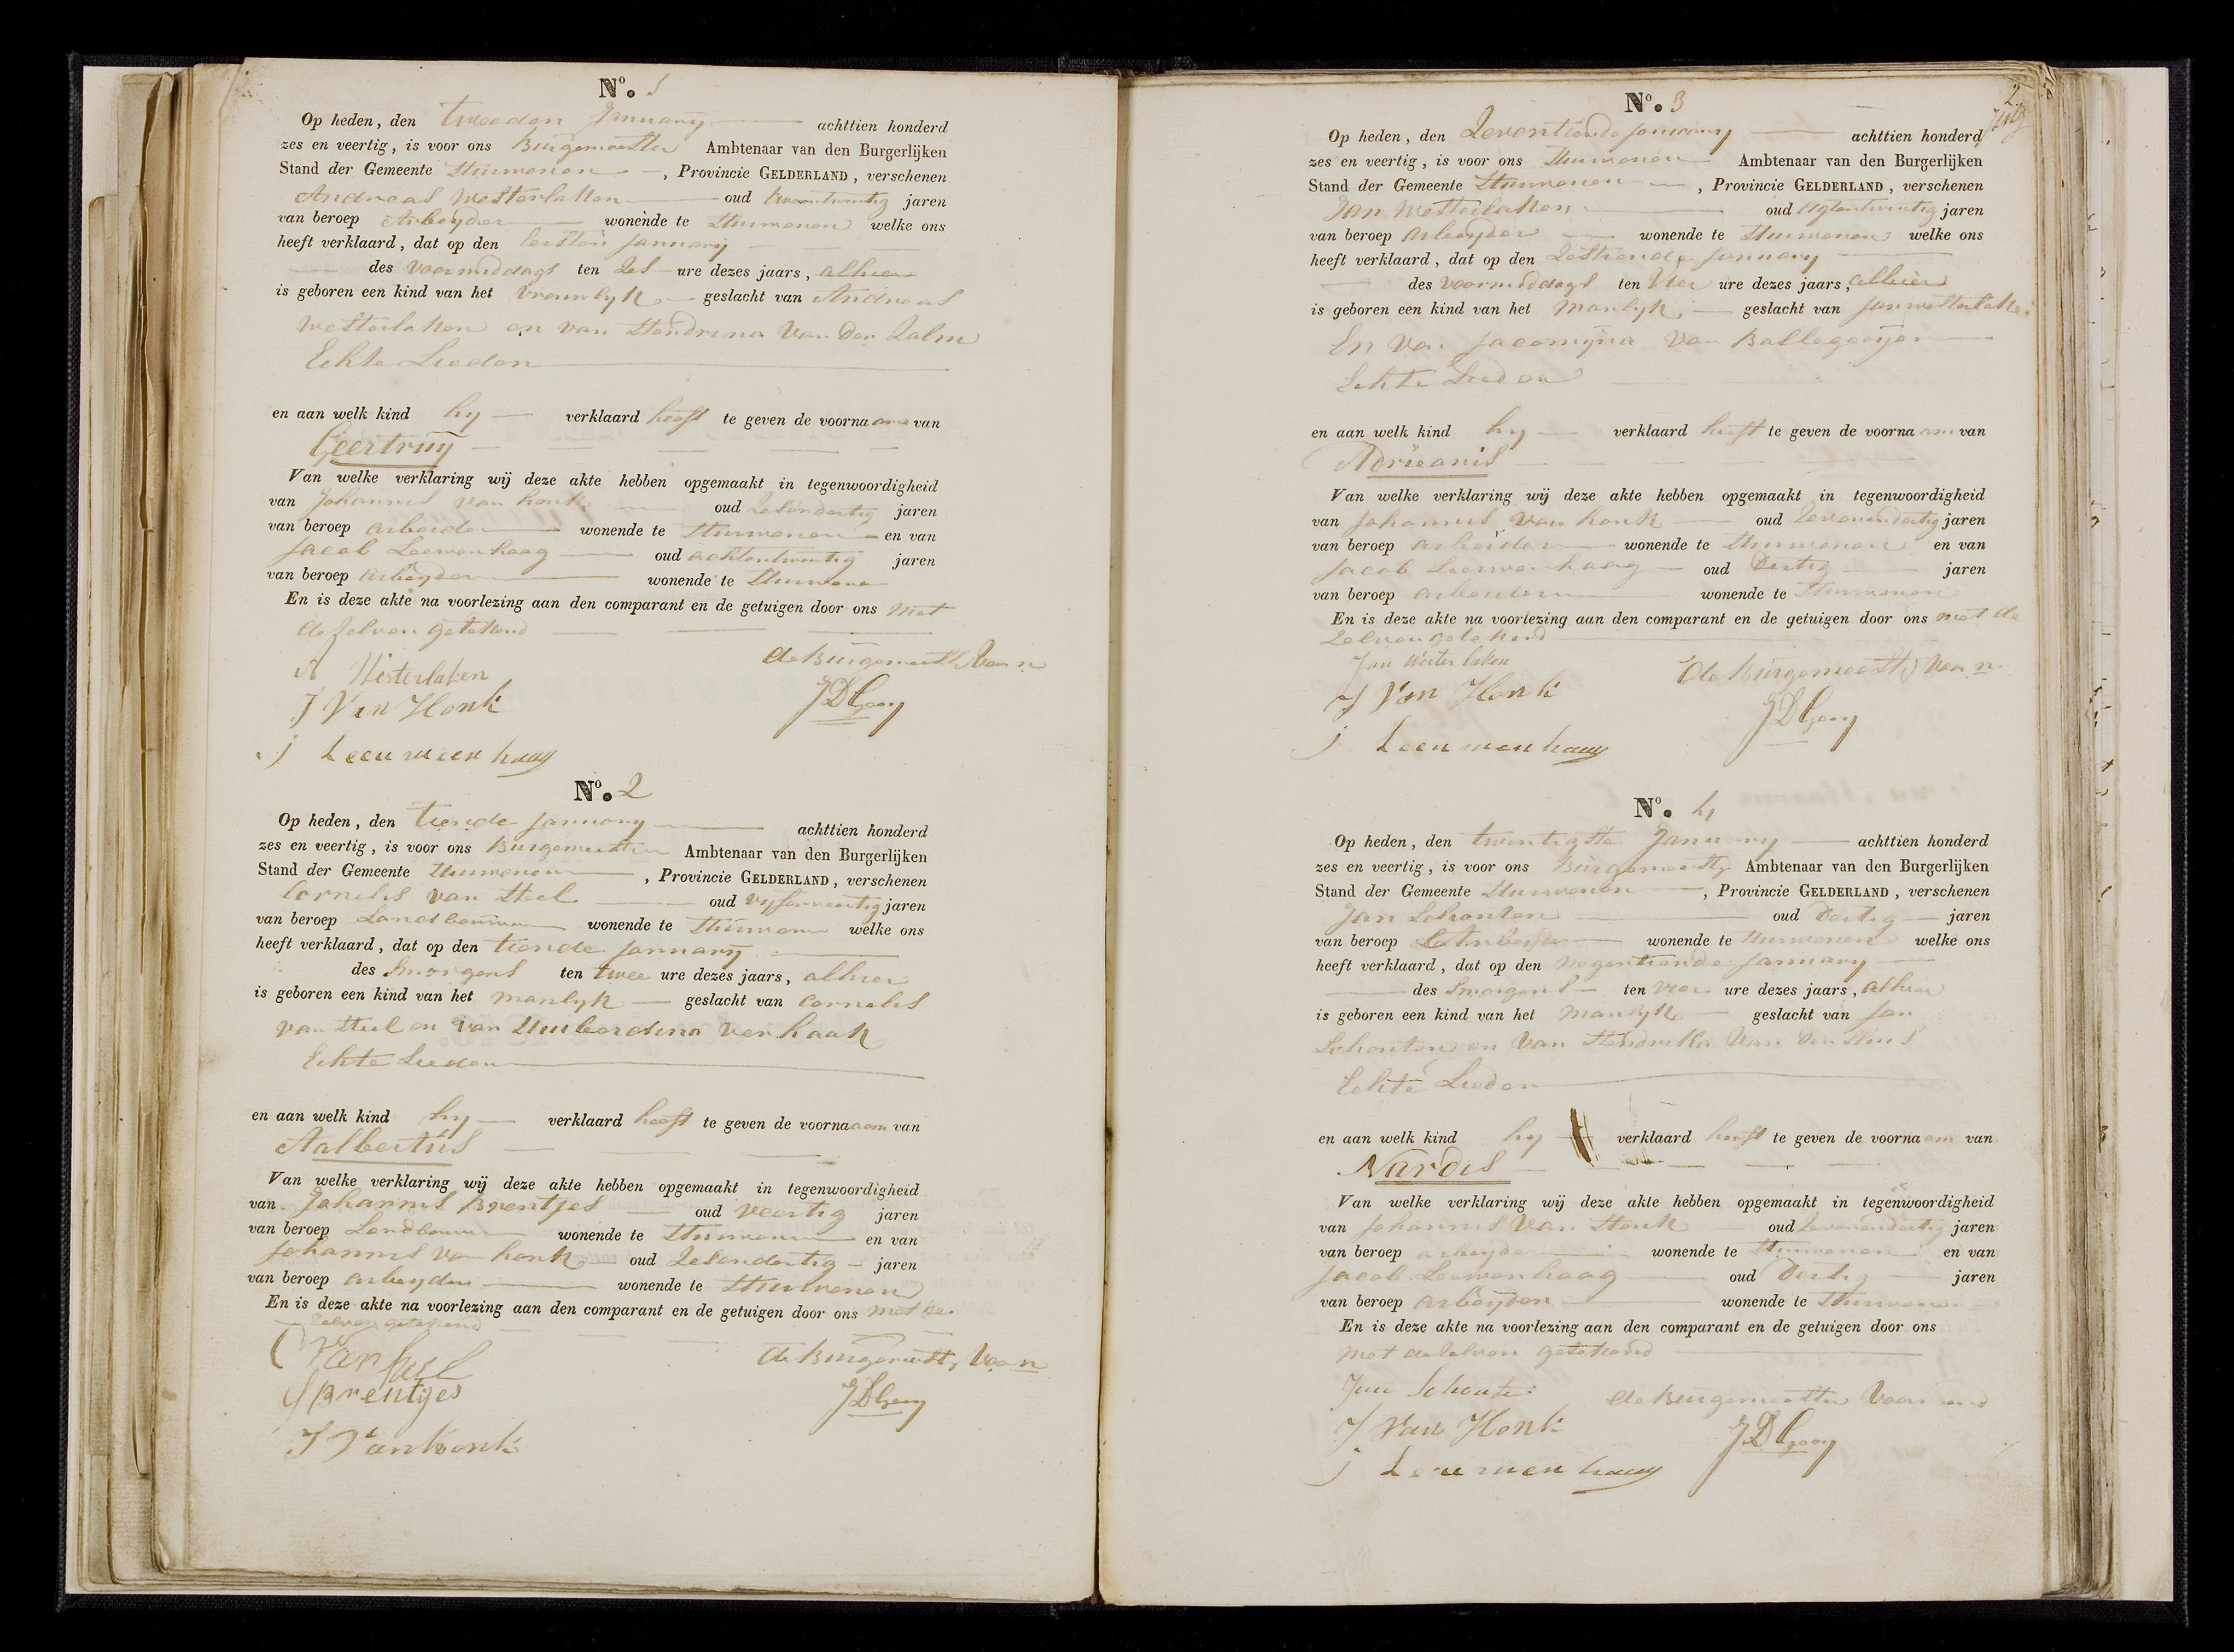 No. 1
Op heden, den tweeden January achttien honderd
zes en veertig, is voor ons Burgemeester Ambtenaar van den Burgerlijken
Stand der Gemeente Hurwenen, Provincie GELDERLAND, verschenen
Andreas Westerlaken oud jaren
van beroep Arbeyder wonende te Hurwenen welke ons
heeft verklaard, dat op den Eersten January
des voormiddags ten Zes ure dezes jaars, alhier
is geboren een kind van het vrouwlyk geslacht van Andreas
Westerlaken en van Hendrina van der Zalm
Echte Lieden
en aan welk kind hy verklaard heeft te geven de voornaam van
Geertruy
Van welke verklaring wij deze akte hebben opgemaakt in tegenwoordigheid
van Johannis van honk oud Zesendertig jaren
van beroep arbeider wonende te Hurwenen en van
Jacob Leewenhaag oud achtentwintig jaren
van beroep arbeyder wonende te Hurwenen
En is deze akte na voorlezing aan den comparant en de getuigen door ons met
de zelven getekend
A Westerlaken de Burgemeester voorn
J Van Honk JDGooy
j Leeuwenhaag
No. 2
Op heden, den tiende January achttien honderd
zes en veertig, is voor ons Burgemeester Ambtenaar van den Burgerlijken
Stand der Gemeente Hurwenen, Provincie GELDERLAND, verschenen
Cornelis van Heel oud vyfenveertig jaren
van beroep Landbouwer wonende te Hurwenen welke ons
heeft verklaard, dat op den tiende January
des Smorgens ten twee ure dezes jaars, alhier
is geboren een kind van het manlyk geslacht van Cornelis
van Heel en van Huiberdina verhaak
Echte Lieden
en aan welk kind hy verklaard heeft te geven de voornaam van
Aalbertus
Van welke verklaring wij deze akte hebben opgemaakt in tegenwoordigheid
van Johannis Brentjes oud veertig jaren
van beroep Landbouwer wonende te Hurwenen en van
Johannis van honk oud Zesendertig jaren
van beroep arbeyder wonende te Hurwenen
En is deze akte na voorlezing aan den comparant en de getuigen door ons met de
zelven getekend
C Van Heel de Burgemeester voorn
J Brentjes JDGooy
J Vanhonk
2
No. 3
Op heden, den Zeventiende January achttien honderd
zes en veertig, is voor ons Hurwenen Ambtenaar van den Burgerlijken
Stand der Gemeente Hurwenen, Provincie GELDERLAND, verschenen
Jan Westerlaken oud agtentwintig jaren
van beroep arbeyder wonende te Hurwenen welke ons
heeft verklaard, dat op den Zestiende January
des voormiddags ten Vier ure dezes jaars, alhier
is geboren een kind van het manlyk geslacht van Jan westerlaken
En van Jacomyna van Ballegooyen
Echte Lieden
en aan welk kind hy verklaard heeft te geven de voornaam van
Adrieanis
Van welke verklaring wij deze akte hebben opgemaakt in tegenwoordigheid
van Johannis van honk oud Zevenendertig jaren
van beroep arbeider wonende te Hurwenen en van
Jacob Leewenhaag oud Dertig jaren
van beroep arbeider wonende te Hurwenen
En is deze akte na voorlezing aan den comparant en de getuigen door ons met de
Zelven getekend
Jan Westerlaken de Burgemeester voorn
J Van Honk JDGooy
j Leeuwenhaag
No. 4
Op heden, den twintigste January achttien honderd
zes en veertig, is voor ons Burgemeester Ambtenaar van den Burgerlijken
Stand der Gemeente Hurwenen, Provincie GELDERLAND, verschenen
Jan Schouten oud Dertig jaren
van beroep wonende te Hurwenen welke ons
heeft verklaard, dat op den Negentiende January
des Smorgens ten vier ure dezes jaars, alhier
is geboren een kind van het manlyk geslacht van Jan
Schouten en van Hendrika van den Huis
Echte Lieden
en aan welk kind hy verklaard heeft te geven de voornaam van
Nardis
Van welke verklaring wij deze akte hebben opgemaakt in tegenwoordigheid
van Johannis van Honk oud Zevenendertig jaren
van beroep arbeyder wonende te Hurwenen en van
Jacob Leewenhaag oud Dertig jaren
van beroep arbeyder wonende te Hurwenen
En is deze akte na voorlezing aan den comparant en de getuigen door ons
met de zelven getekend
Jan Schouten de Burgemeester voornoemd
J Van Honk JDGooy
j Leeuwenhaag